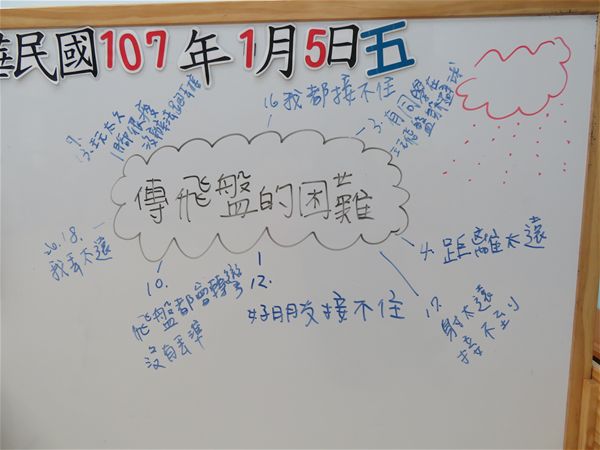 華民國107年1月5日五
16.我都接不住
3.有同學在
玩飛盤與踢球
7.
13.玩太久
腳很痠
傳飛盤的困難
20.18.
我丟不遠
4.距離太遠
10.
飛盤都會轉彎
沒有丟準
12.
好朋友接不住
17.
射太遠
接不到